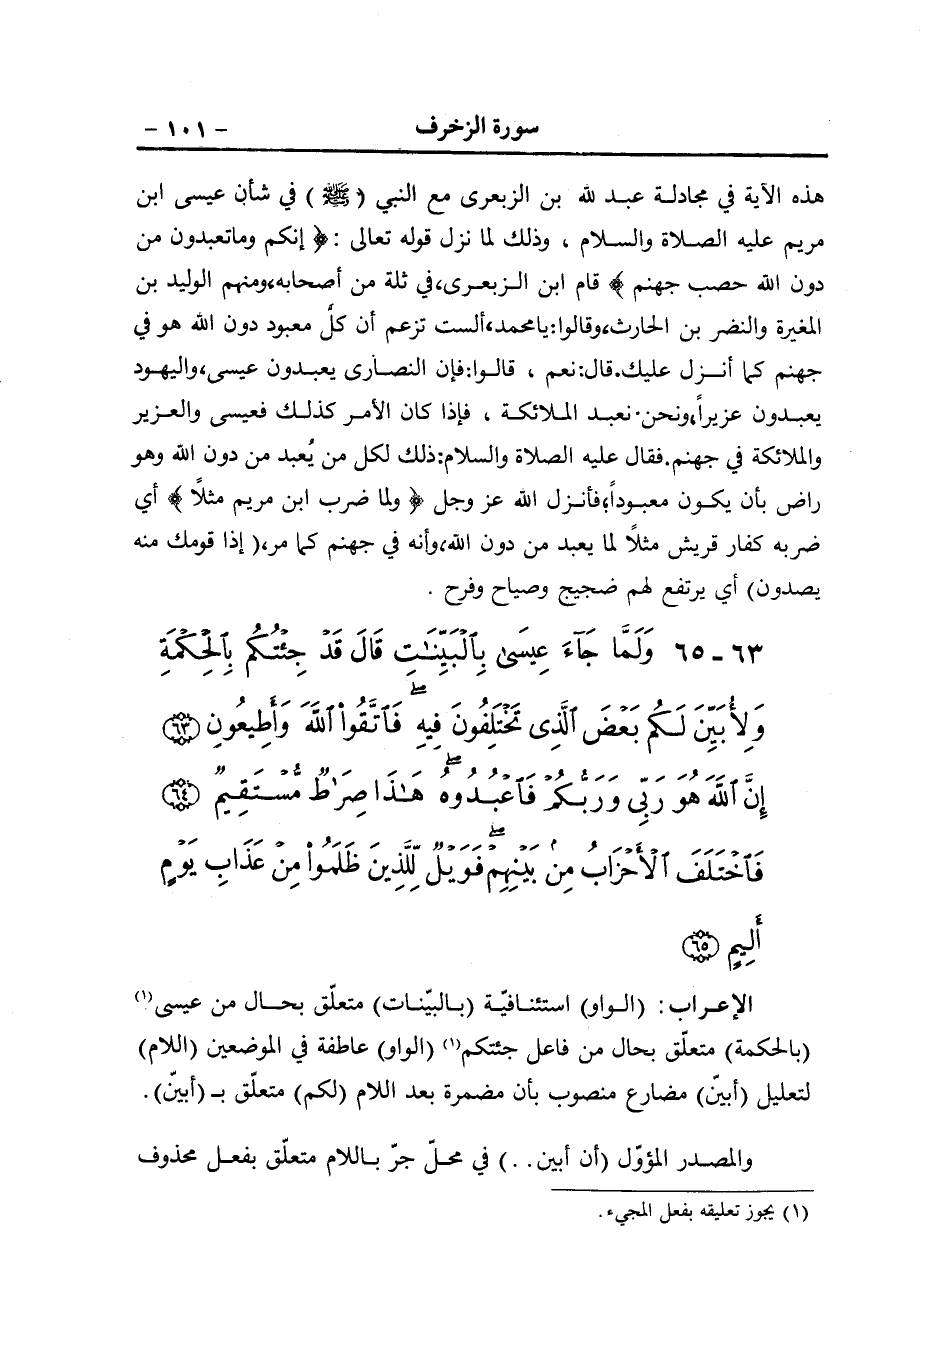 سورة الزخرف - ١٠١ -
هذه الآية في مجادلة عبد لله بن الزبعرى مع النبي (ﷺ) في شأن عيسى ابن
مريم عليه الصلاة والسلام ، وذلك لما نزل قوله تعالى :﴿ إنكم وماتعبدون من
دون الله حصب جهنم ﴾ قام ابن الزبعرى،في ثلة من أصحابه،ومنهم الوليد بن
المغيرة والنضر بن الحارث،وقالوا:يامحمد،ألست تزعم أن كلَّ معبود دون الله هو في
جهنم كما أنزل عليك.قال:نعم ، قالوا:فإن النصارى يعبدون عيسى،واليهود
يعبدون عزيراً،ونحن نعبد الملائكة ، فإذا كان الأمر كذلك فعيسى والعزير
والملائكة في جهنم.فقال عليه الصلاة والسلام:ذلك لكل من يُعبد من دون الله وهو
راض بأن يكون معبوداً،فأنزل الله عز وجل ﴿ ولما ضرب ابن مريم مثلاً ﴾ أي
ضربه كفار قريش مثلاً لما يعبد من دون الله،وأنه في جهنم كما مر،( إذا قومك منه
يصدون) أي يرتفع لهم ضجيج وصياح وفرح .
٦٣ - ٦٥ وَلَمَّا جَآءَ عِيسَىٰ بِٱلْبَيِّنَٰتِ قَالَ قَدْ جِئْتُكُم بِٱلْحِكْمَةِ
وَلِأُبَيِّنَ لَكُم بَعْضَ ٱلَّذِى تَخْتَلِفُونَ فِيهِ ۖ فَٱتَّقُوا۟ ٱللَّهَ وَأَطِيعُونِ ﴿٦٣﴾
إِنَّ ٱللَّهَ هُوَ رَبِّى وَرَبُّكُمْ فَٱعْبُدُوهُ ۚ هَٰذَا صِرَٰطٌ مُّسْتَقِيمٌ ﴿٦٤﴾
فَٱخْتَلَفَ ٱلْأَحْزَابُ مِنۢ بَيْنِهِمْ ۖ فَوَيْلٌ لِّلَّذِينَ ظَلَمُوا۟ مِنْ عَذَابِ يَوْمٍ
أَلِيمٍ ﴿٦٥﴾
الإعراب: (الواو) استئنافيّة (بالبيّنات) متعلّق بحال من عيسى(١)
(بالحكمة) متعلّق بحال من فاعل جئتكم(١) (الواو) عاطفة في الموضعين (اللام)
لتعليل (أبينّ) مضارع منصوب بأن مضمرة بعد اللام (لكم) متعلّق بـ (أبينّ).
والمصدر المؤوّل (أن أبين. .) في محلّ جرّ باللام متعلّق بفعل محذوف
(١) يجوز تعليقه بفعل المجيء.